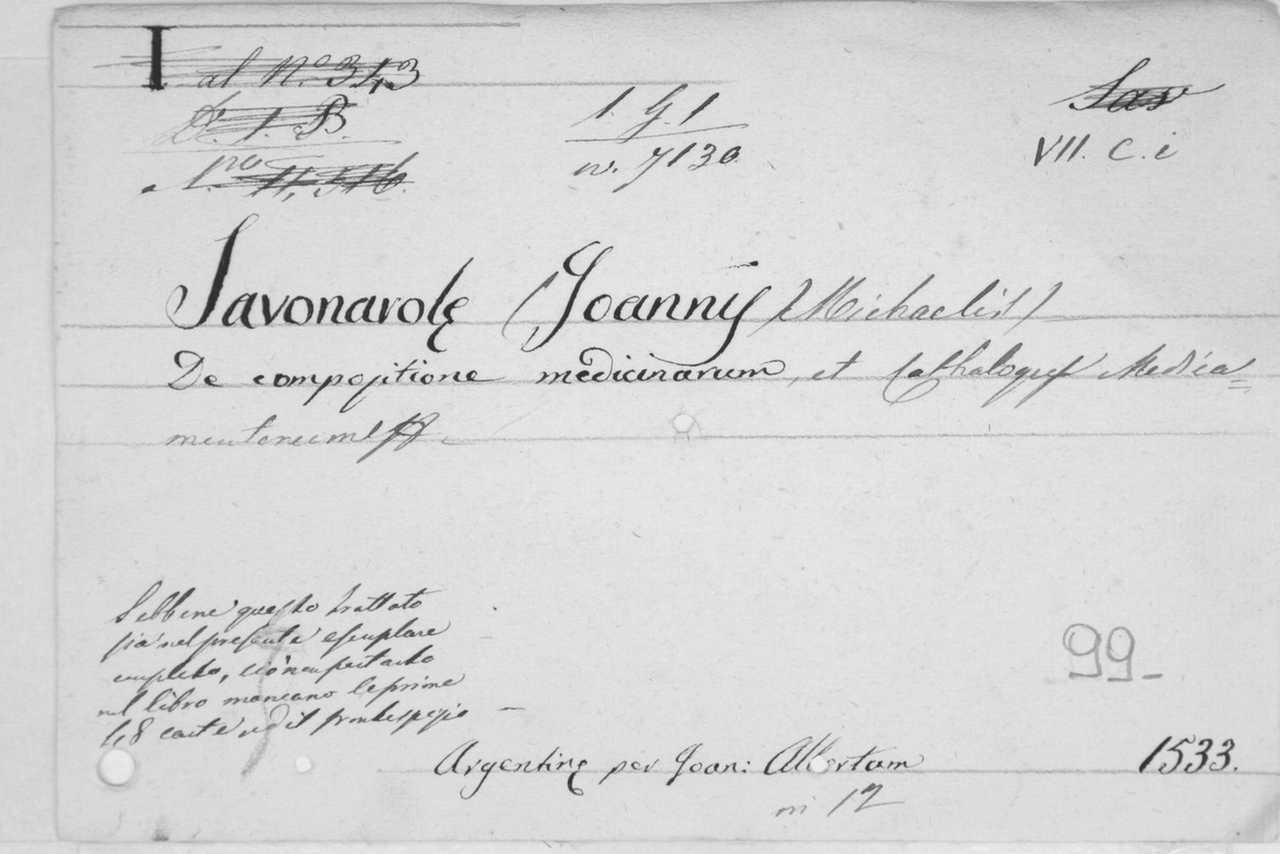 I
al N.º 343
1. B.
1. G. 1
n. 7130
Sav
VII. C. i
Savonarolę (Joannis) (Michaelis)
De compositione medicinarum, et Cathalogus Medica=
mentorum
Sebbene questo trattato
sia nel presente esemplare
completo, ciò non pertanto
nel libro mancano le prime
48 carte ed il frontespizio
99-
Argentinę per Joan: Albertum
1533.
in 12